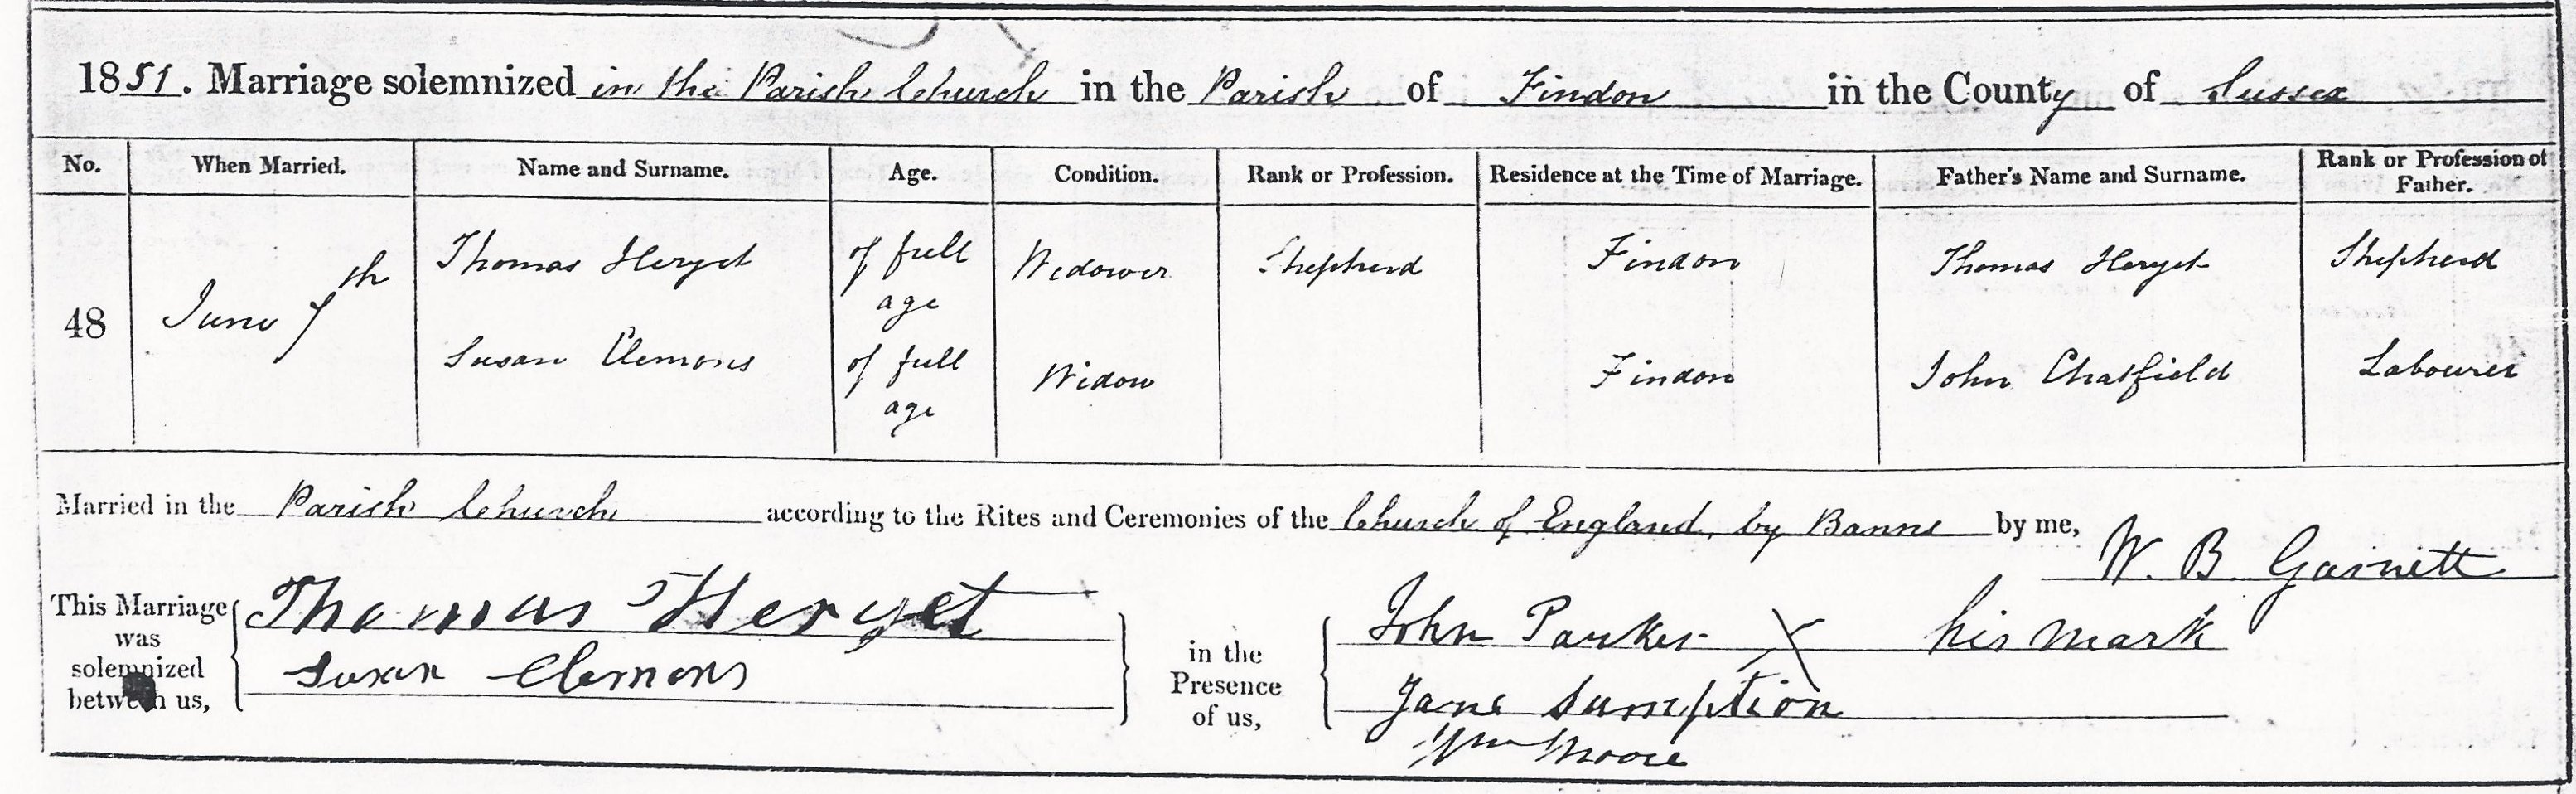 1851. Marriage solemnized in the Parish Church in the Parish of Findon in the County of Sussex
No. When Married. Name and Surname. Age. Condition. Rank or Profession. Residence at the Time of Marriage. Father's Name and Surname. Rank or Profession of Father.
48 June 7th Thomas Heryet of full age Widower Shepherd Findon Thomas Heryet Shepherd
Susan Clemons of full age Widow Findon John Chatfield Labourer
Married in the Parish Church according to the Rites and Ceremonies of the Church of England, by Banns by me, W. B. Garnett
This Marriage was solemnized between us, Thomas Heryet
Susan Clemons
in the Presence of us, John Parker X his mark
Jane Sumption
Wm Moore